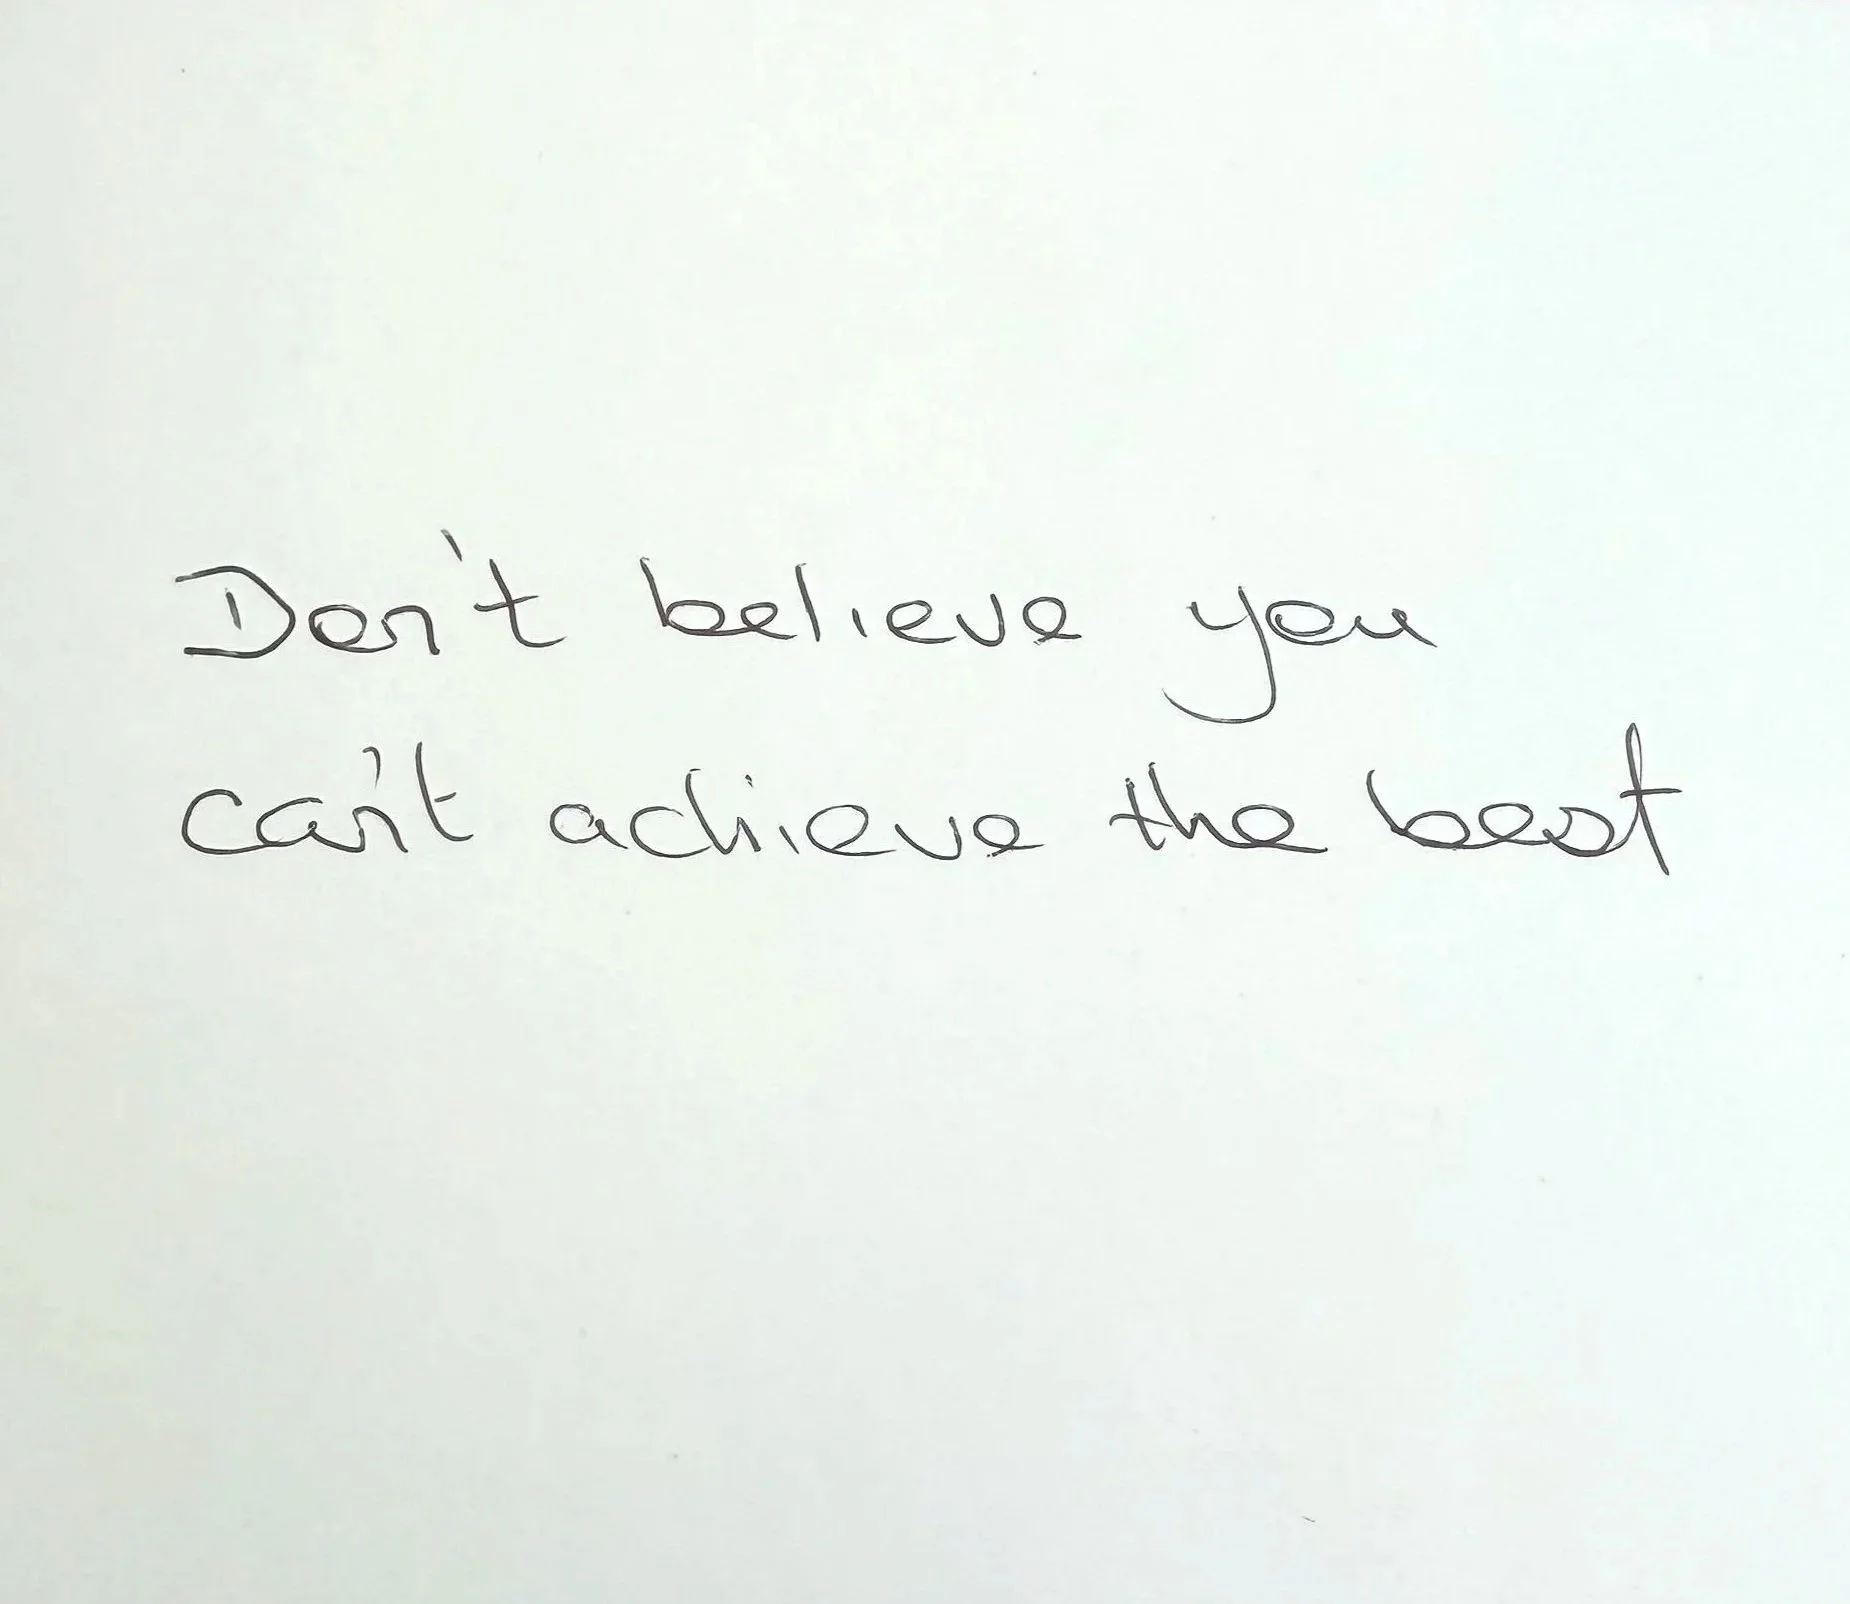 Don't believe you
can't achieve the best